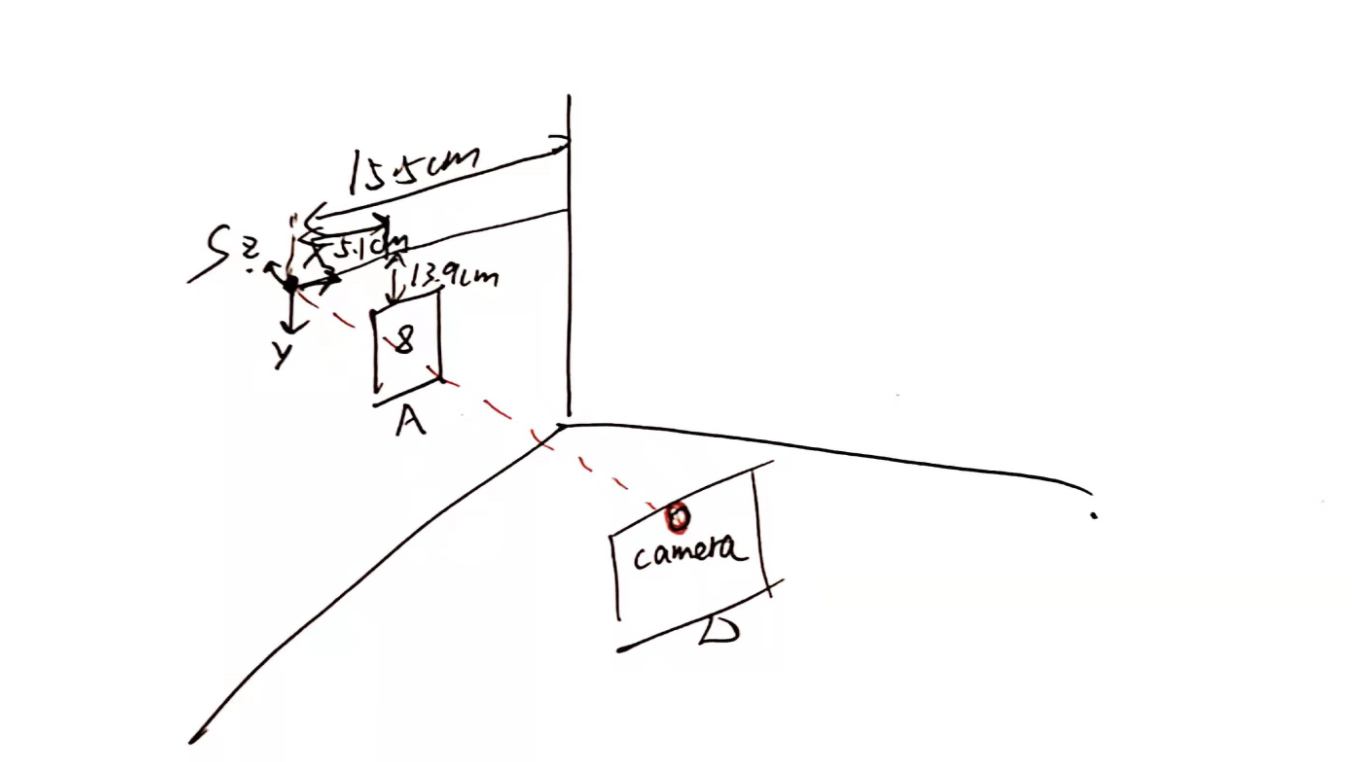 15.5cm
S
z
x
5.1cm
13.9cm
y
8
A
camera
D